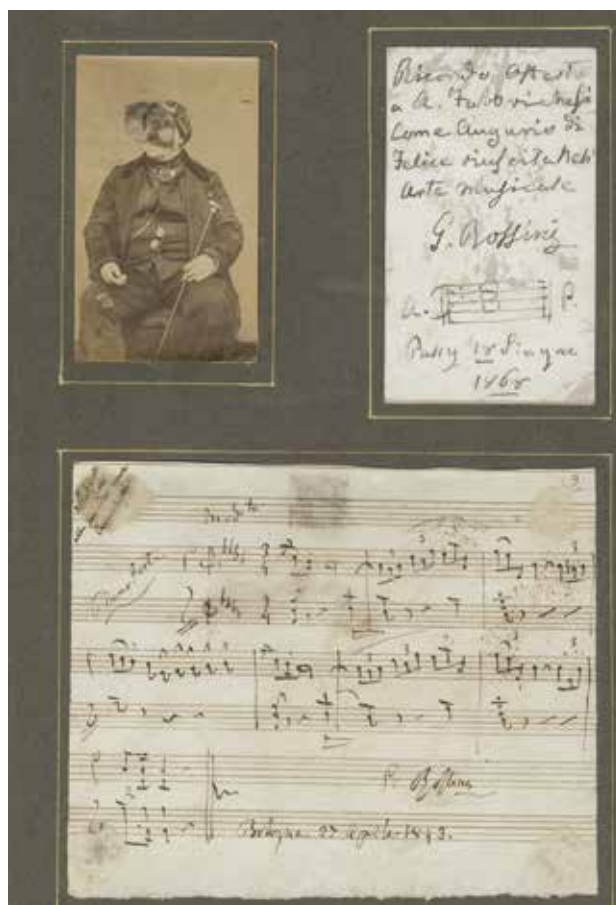 Ricordo offerto
a A.
Come Augurio di
Felice riuscita Nell'
Arte musicale
G. Rossini
A. P.
Passy 18 Giugno
1868
Piano forte
Rossini
Bologna 27 Aprile 1843.